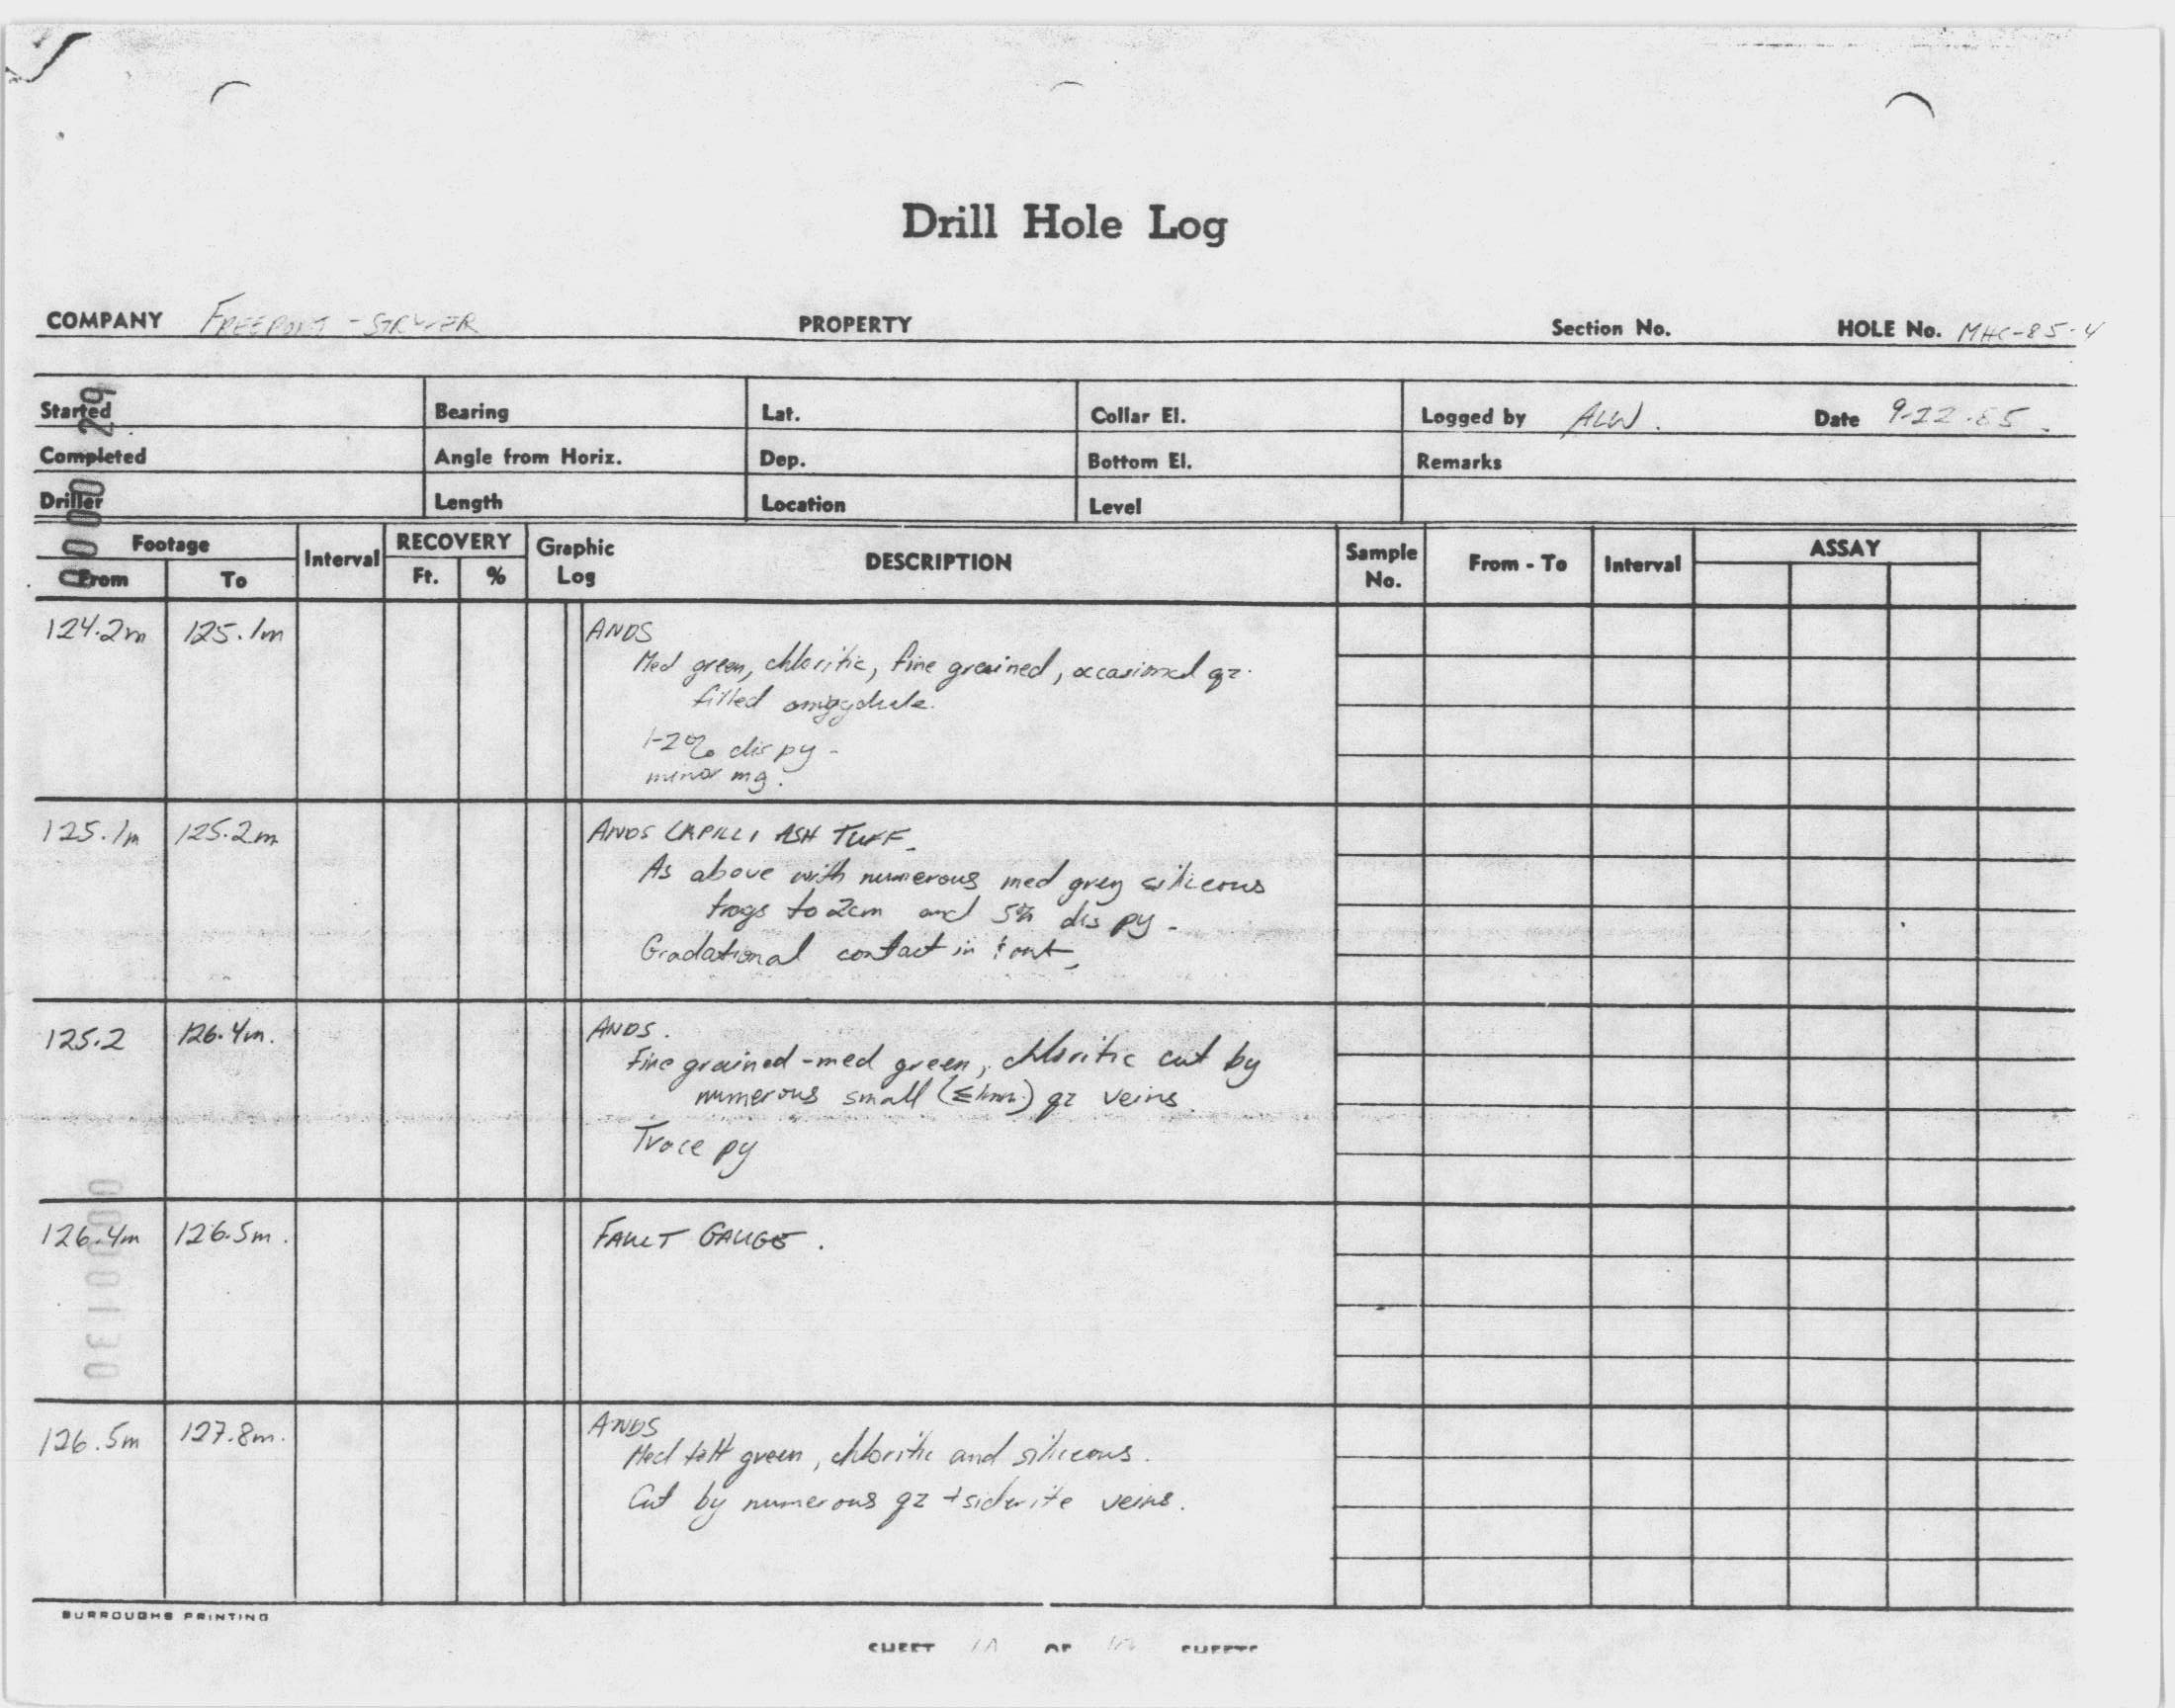 Drill Hole Log
COMPANY FREEPORT - STRYKER PROPERTY Section No. HOLE No. MHC-85-4
Started Bearing Lat. Collar El. Logged by ALW. Date 9-22-85.
Completed Angle from Horiz. Dep. Bottom El. Remarks
Driller Length Location Level
Footage Interval RECOVERY Graphic Log DESCRIPTION Sample No. From - To Interval ASSAY
From To Ft. %
124.2m 125.1m ANDS
Med green, chloritic, fine grained, occasional qz.
filled amygdule.
1-2% dis py -
minor mg.
125.1m 125.2m ANDS LAPILLI ASH TUFF.
As above with numerous med grey siliceous
frags to 2cm and 5% dis py -
Gradational contact in & out.
125.2 126.4m. ANDS.
Fine grained - med green, chloritic cut by
numerous small (≤1mm) qz veins
Trace py
126.4m 126.5m. FAULT GAUGE.
126.5m 127.8m. ANDS
Med green, chloritic and siliceous.
Cut by numerous qz + siderite veins.
BURROUGHS PRINTING
SHEET OF SHEETS
0000129
0000130